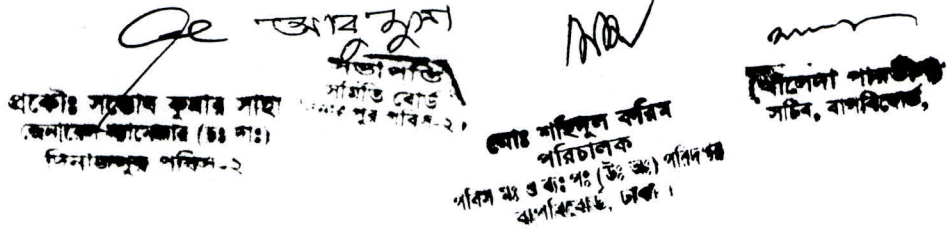 প্রকৌঃ সন্তোষ কুমার সাহা
জেনারেল ম্যানেজার (চঃ দাঃ)
দিনাজপুর পবিস-২
আবু
সভাপতি
সমিতি বোর্ড
দিনাজপুর পবিস-২
মোঃ শহিদুল করিম
পরিচালক
পবিস মঃ ও ব্যঃ পঃ (উঃ অঃ) পরিদপ্তর
বাপবিবোর্ড, ঢাকা।
খালেদা পারভীন
সচিব, বাপবিবোর্ড,